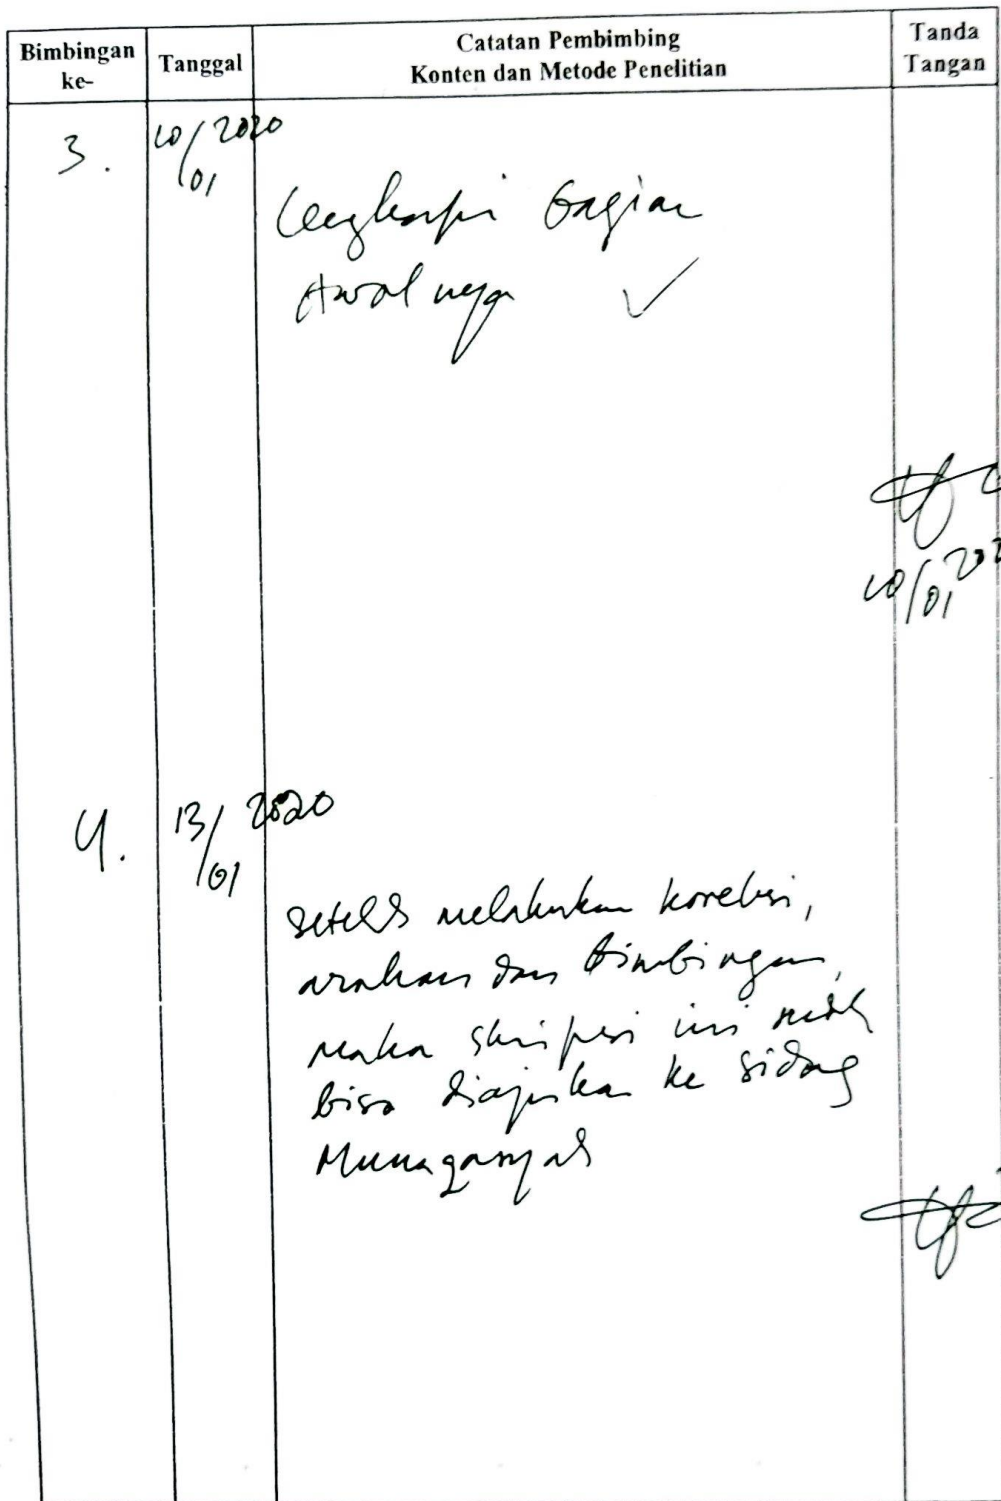 Bimbingan ke-
Tanggal
Catatan Pembimbing
Konten dan Metode Penelitian
Tanda Tangan
3.
10/01 2020
Lengkapi Bagian
Awalnya ✓
10/01 202
4.
13/01 2020
Setelah melakukan koreksi,
arahan dan Bimbingan,
maka skripsi ini sudah
bisa diajukan ke sidang
Munaqasyah